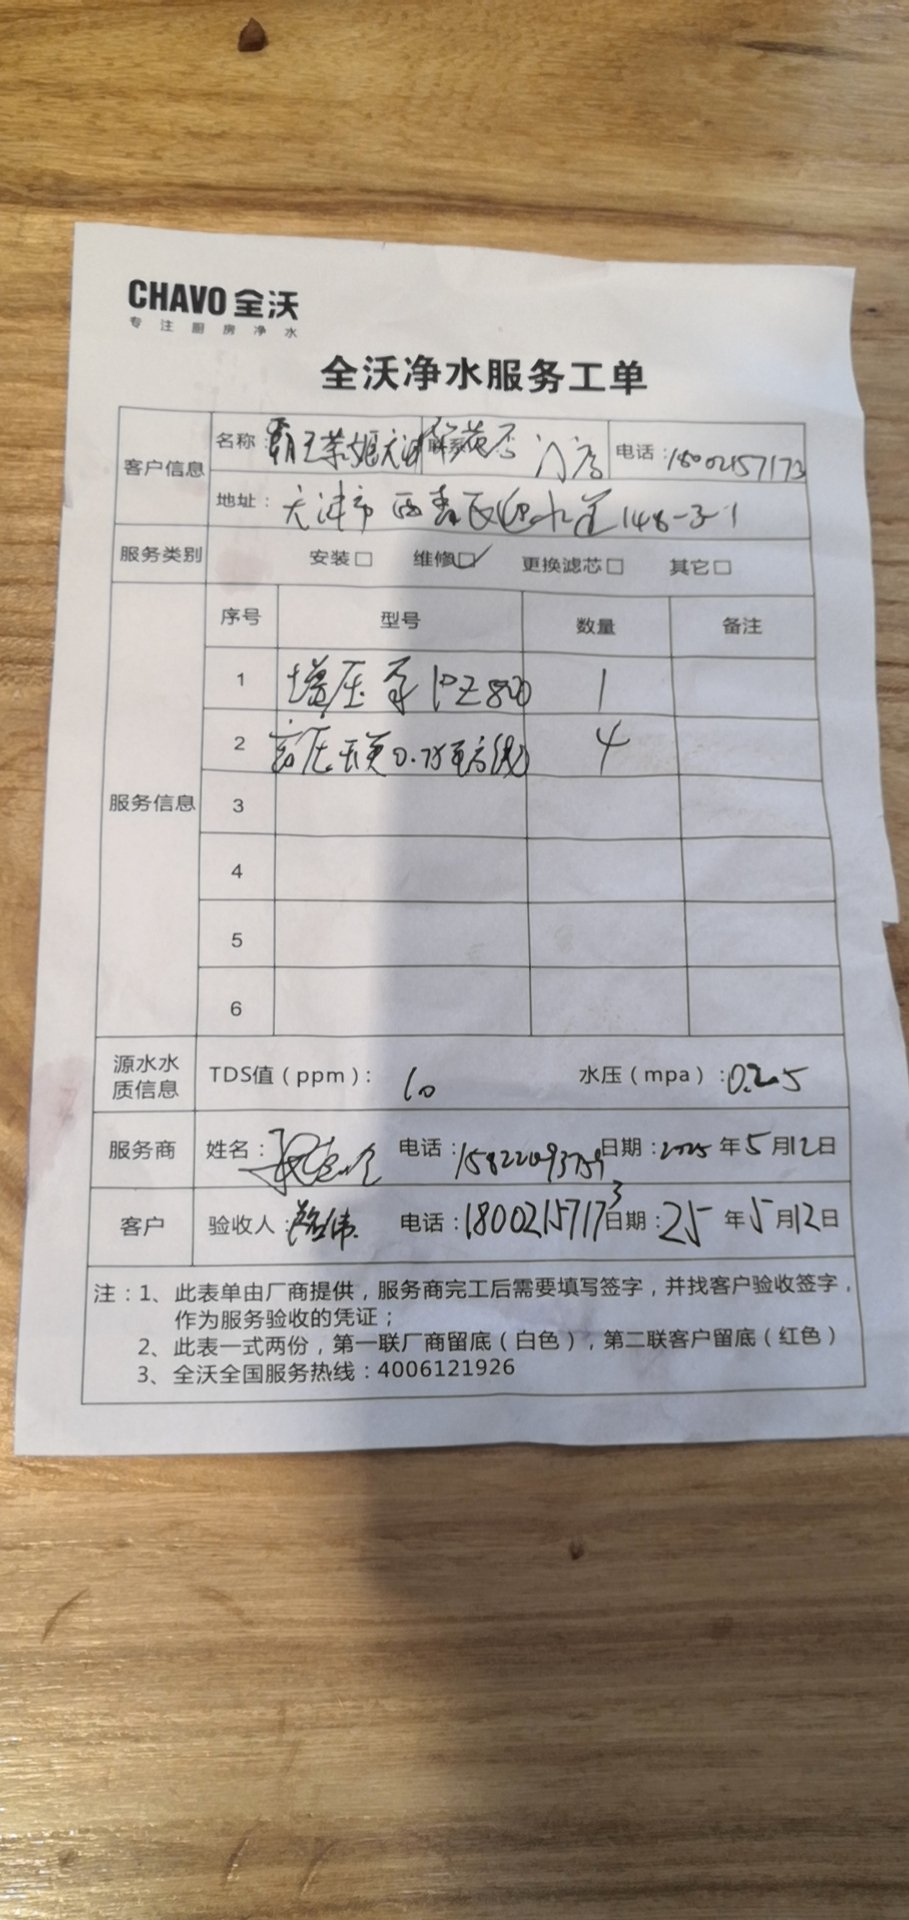 CHAVO 全沃
专注厨房净水
全沃净水服务工单
客户信息 名称：霸王茶姬天津 门店 电话：18002157173
地址：天津市西青区 水道148-3-1
服务类别 安装□ 维修□✓ 更换滤芯□ 其它□
服务信息 序号 型号 数量 备注
1 增压泵 PZ800 1
2 高压 0.75 4
3
4
5
6
源水水质信息 TDS值（ppm）： 10 水压（mpa）：0.25
服务商 姓名： 电话： 日期：2025年5月12日
客户 验收人： 伟 电话：18002157173 日期：25年5月12日
注：1、此表单由厂商提供，服务商完工后需要填写签字，并找客户验收签字，
作为服务验收的凭证；
2、此表一式两份，第一联厂商留底（白色），第二联客户留底（红色）
3、全沃全国服务热线：4006121926